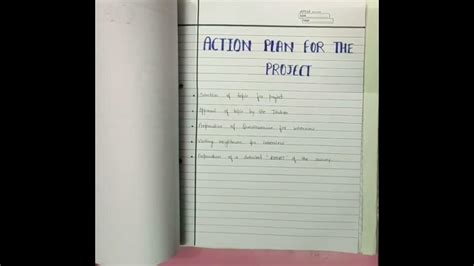 ACTION PLAN FOR THE
PROJECT
Selection of topic for project
Approval of topic by the
Preparation of Questionnaire for interview
Visiting neighbours for interview
Preparation of a detailed 'REPORT' of the survey